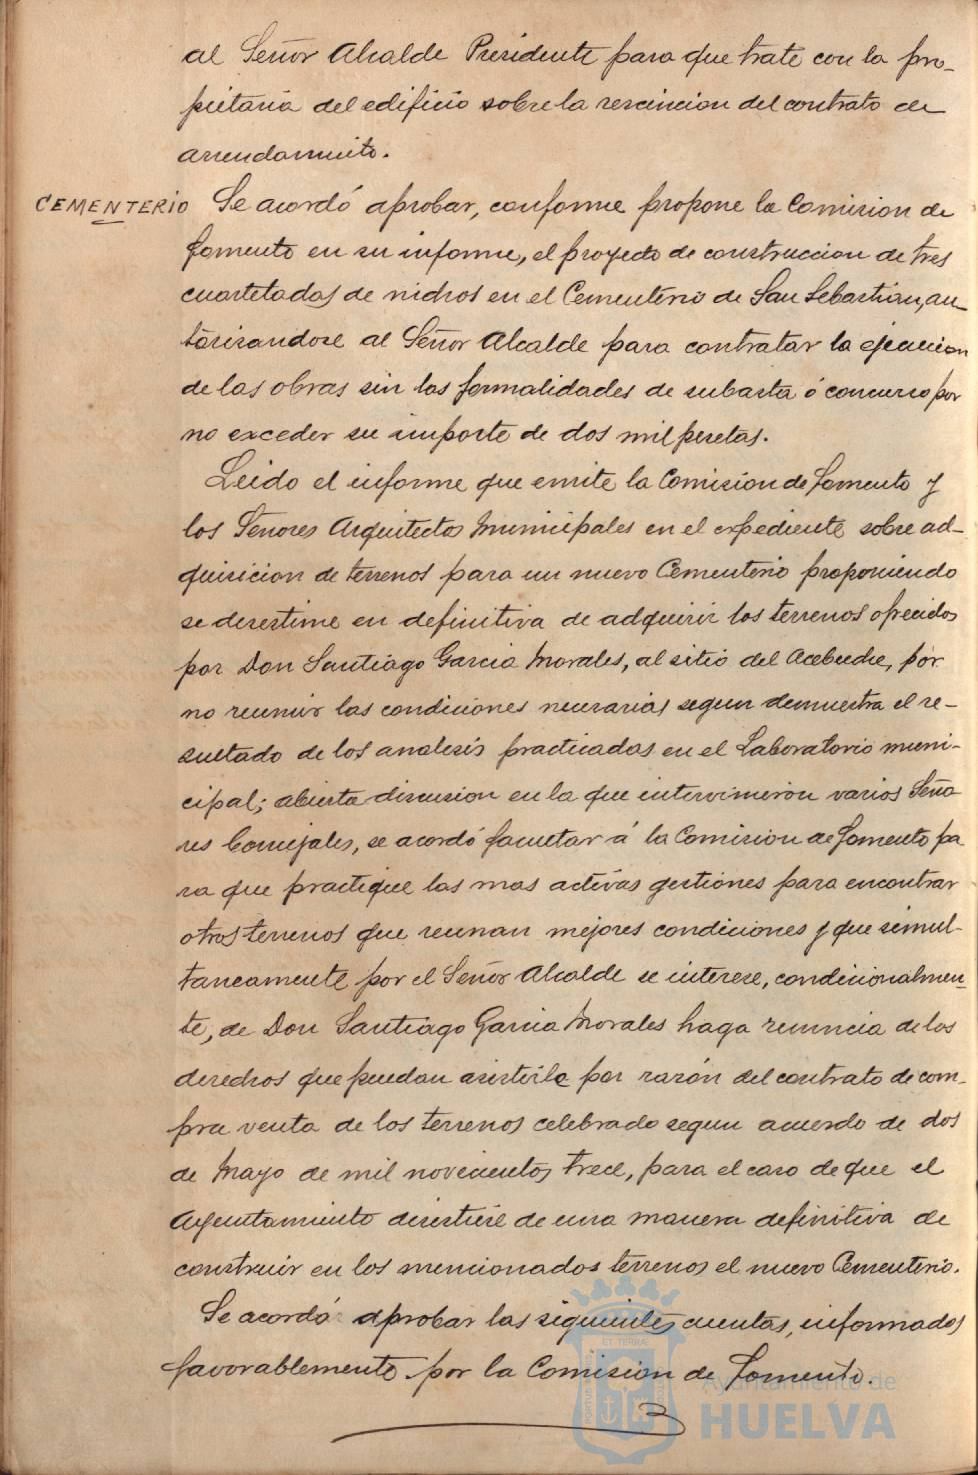 al Señor Alcalde Presidente para que trate con la pro-
pietaria del edificio sobre la rescincion del contrato de
arrendamiento.
CEMENTERIO Se acordó aprobar, conforme propone la Comision de
Fomento en su informe, el proyecto de construccion de tres
cuarteladas de nichos en el Cementerio de San Sebastian, au-
torizandose al Señor Alcalde para contratar la ejecucion
de las obras sin las formalidades de subasta ó concurso por
no exceder su importe de dos mil pesetas.
Leido el informe que emite la Comision de Fomento y
los Señores Arquitectos Municipales en el expediente sobre ad-
quisicion de terrenos para un nuevo Cementerio proponiendo
se desestime en definitiva de adquirir los terrenos ofrecidos
por Don Santiago Garcia Morales, al sitio del Acebuche, por
no reunir las condiciones necesarias segun demuestra el re-
sultado de los analisis practicados en el Laboratorio muni-
cipal; abierta discusion en la que intervinieron varios Seño
res Concejales, se acordó facultar á la Comision de Fomento pa
ra que practique las mas activas gestiones para encontrar
otros terrenos que reunan mejores condiciones y que simul-
taneamente por el Señor Alcalde se interese, condicionalmen-
te, de Don Santiago Garcia Morales haga renuncia de los
derechos que puedan asistirle por razón del contrato de com-
pra venta de los terrenos celebrado segun acuerdo de dos
de Mayo de mil novecientos trece, para el caso de que el
Ayuntamiento desistiese de una manera definitiva de
construir en los mencionados terrenos el nuevo Cementerio.
Se acordó aprobar las siguientes cuentas, informadas
favorablemente por la Comision de Fomento.
Ayuntamiento de
HUELVA